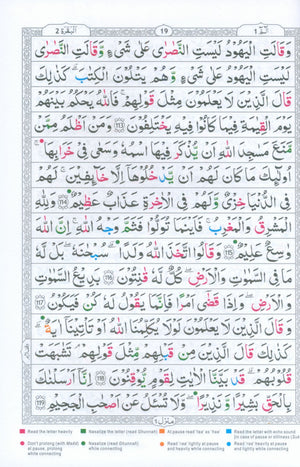 البقرة ٢
19
الٓمّ ١
وَقَالَتِ الْيَهُوْدُ لَيْسَتِ النَّصٰرٰى عَلٰى شَىْءٍ ۪ وَّقَالَتِ النَّصٰرٰى
لَيْسَتِ الْيَهُوْدُ عَلٰى شَىْءٍ ۙ وَّهُمْ يَتْلُوْنَ الْكِتٰبَ ؕ كَذٰلِكَ
قَالَ الَّذِيْنَ لَا يَعْلَمُوْنَ مِثْلَ قَوْلِهِمْ ۚ فَاللّٰهُ يَحْكُمُ بَيْنَهُمْ
يَوْمَ الْقِيٰمَةِ فِيْمَا كَانُوْا فِيْهِ يَخْتَلِفُوْنَ ﴿۱۱۳﴾ وَمَنْ اَظْلَمُ مِمَّنْ
مَّنَعَ مَسٰجِدَ اللّٰهِ اَنْ يُّذْكَرَ فِيْهَا اسْمُهٗ وَسَعٰى فِيْ خَرَابِهَا ؕ
اُولٰٓئِكَ مَا كَانَ لَهُمْ اَنْ يَّدْخُلُوْهَاۤ اِلَّا خَآئِفِيْنَ ؕ لَهُمْ
فِى الدُّنْيَا خِزْىٌ وَّلَهُمْ فِى الْاٰخِرَةِ عَذَابٌ عَظِيْمٌ ﴿۱۱۴﴾ وَلِلّٰهِ
الْمَشْرِقُ وَالْمَغْرِبُ ۗ فَاَيْنَمَا تُوَلُّوْا فَثَمَّ وَجْهُ اللّٰهِ ؕ اِنَّ اللّٰهَ
وَاسِعٌ عَلِيْمٌ ﴿۱۱۵﴾ وَقَالُوا اتَّخَذَ اللّٰهُ وَلَدًا ۙ سُبْحٰنَهٗ ؕ بَلْ لَّهٗ
مَا فِى السَّمٰوٰتِ وَالْاَرْضِ ؕ كُلٌّ لَّهٗ قٰنِتُوْنَ ﴿۱۱۶﴾ بَدِيْعُ السَّمٰوٰتِ
وَالْاَرْضِ ؕ وَاِذَا قَضٰٓى اَمْرًا فَاِنَّمَا يَقُوْلُ لَهٗ كُنْ فَيَكُوْنُ ﴿۱۱۷﴾
وَقَالَ الَّذِيْنَ لَا يَعْلَمُوْنَ لَوْلَا يُكَلِّمُنَا اللّٰهُ اَوْ تَاْتِيْنَاۤ اٰيَةٌ ؕ
كَذٰلِكَ قَالَ الَّذِيْنَ مِنْ قَبْلِهِمْ مِّثْلَ قَوْلِهِمْ ؕ تَشَابَهَتْ
قُلُوْبُهُمْ ؕ قَدْ بَيَّنَّا الْاٰيٰتِ لِقَوْمٍ يُّوْقِنُوْنَ ﴿۱۱۸﴾ اِنَّاۤ اَرْسَلْنٰكَ
بِالْحَقِّ بَشِيْرًا وَّنَذِيْرًا ۙ وَّلَا تُسْـَٔلُ عَنْ اَصْحٰبِ الْجَحِيْمِ ﴿۱۱۹﴾
منزل ١
Read the letter heavily
Nasalize the letter (read Ghunnah)
while connecting
Read 'taa' at pause read 'taa' as 'haa'
Read the letter with echo sound
(In case of pause or stillness (Sukoon))
Don't prolong (with Madd)
at pause, prolong
while connecting
Nasalize (read Ghunnah)
while connecting
Read 'raa' lightly at pause
and heavily while connecting
Read 'raa' heavily at pause
and lightly while connecting